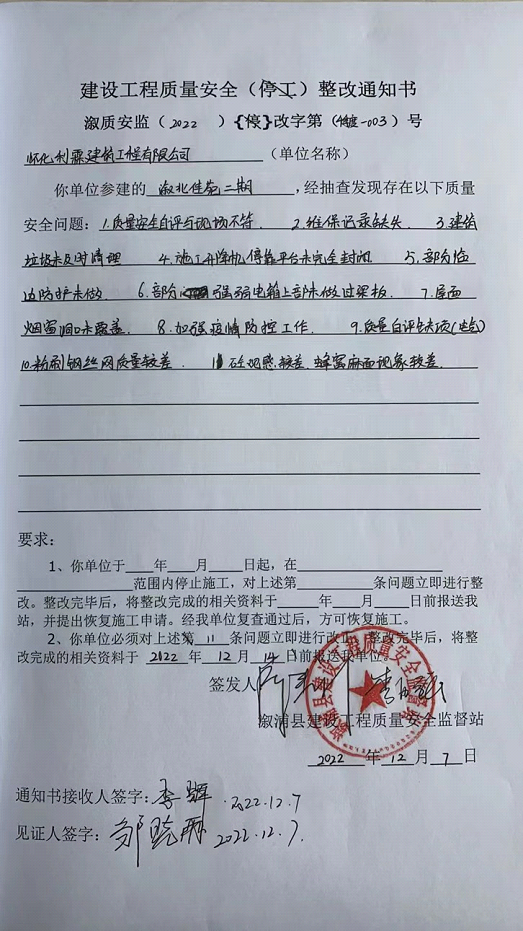 建设工程质量安全（停工）整改通知书
溆质安监（2022 ）{停}改字第（ -003）号
怀化利霖建筑工程有限公司（单位名称）
你单位参建的 溆北佳苑二期 ,经抽查发现存在以下质量
安全问题：1.质量安全自评与现场不符. 2.维保记录缺失. 3.建筑
垃圾未及时清理 4.施工升降机停靠平台未完全封闭 5.部分临
边防护未做. 6.部分 强弱电箱上部未做过梁板. 7.屋面
烟窗洞口未覆盖. 8.加强疫情防控工作. 9.质量自评缺项
10.粉刷钢丝网质量较差. 11 砼观感较差.蜂窝麻面现象较差.
要求：
1、你单位于 年 月 日起，在
范围内停止施工，对上述第 条问题立即进行整
改。整改完毕后，将整改完成的相关资料于 年 月 日前报送我
站，并提出恢复施工申请。经我单位复查通过后，方可恢复施工。
2、你单位必须对上述第 11 条问题立即进行改正，整改完毕后，将整
改完成的相关资料于 2022 年 12 月 14 日前报送我单位。
签发人
溆浦县建设工程质量安全监督站
溆浦县建设工程质量安全监督站
2022 年 12 月 7 日
通知书接收人签字：李辉 2022.12.7
见证人签字：邹 2022.12.7.